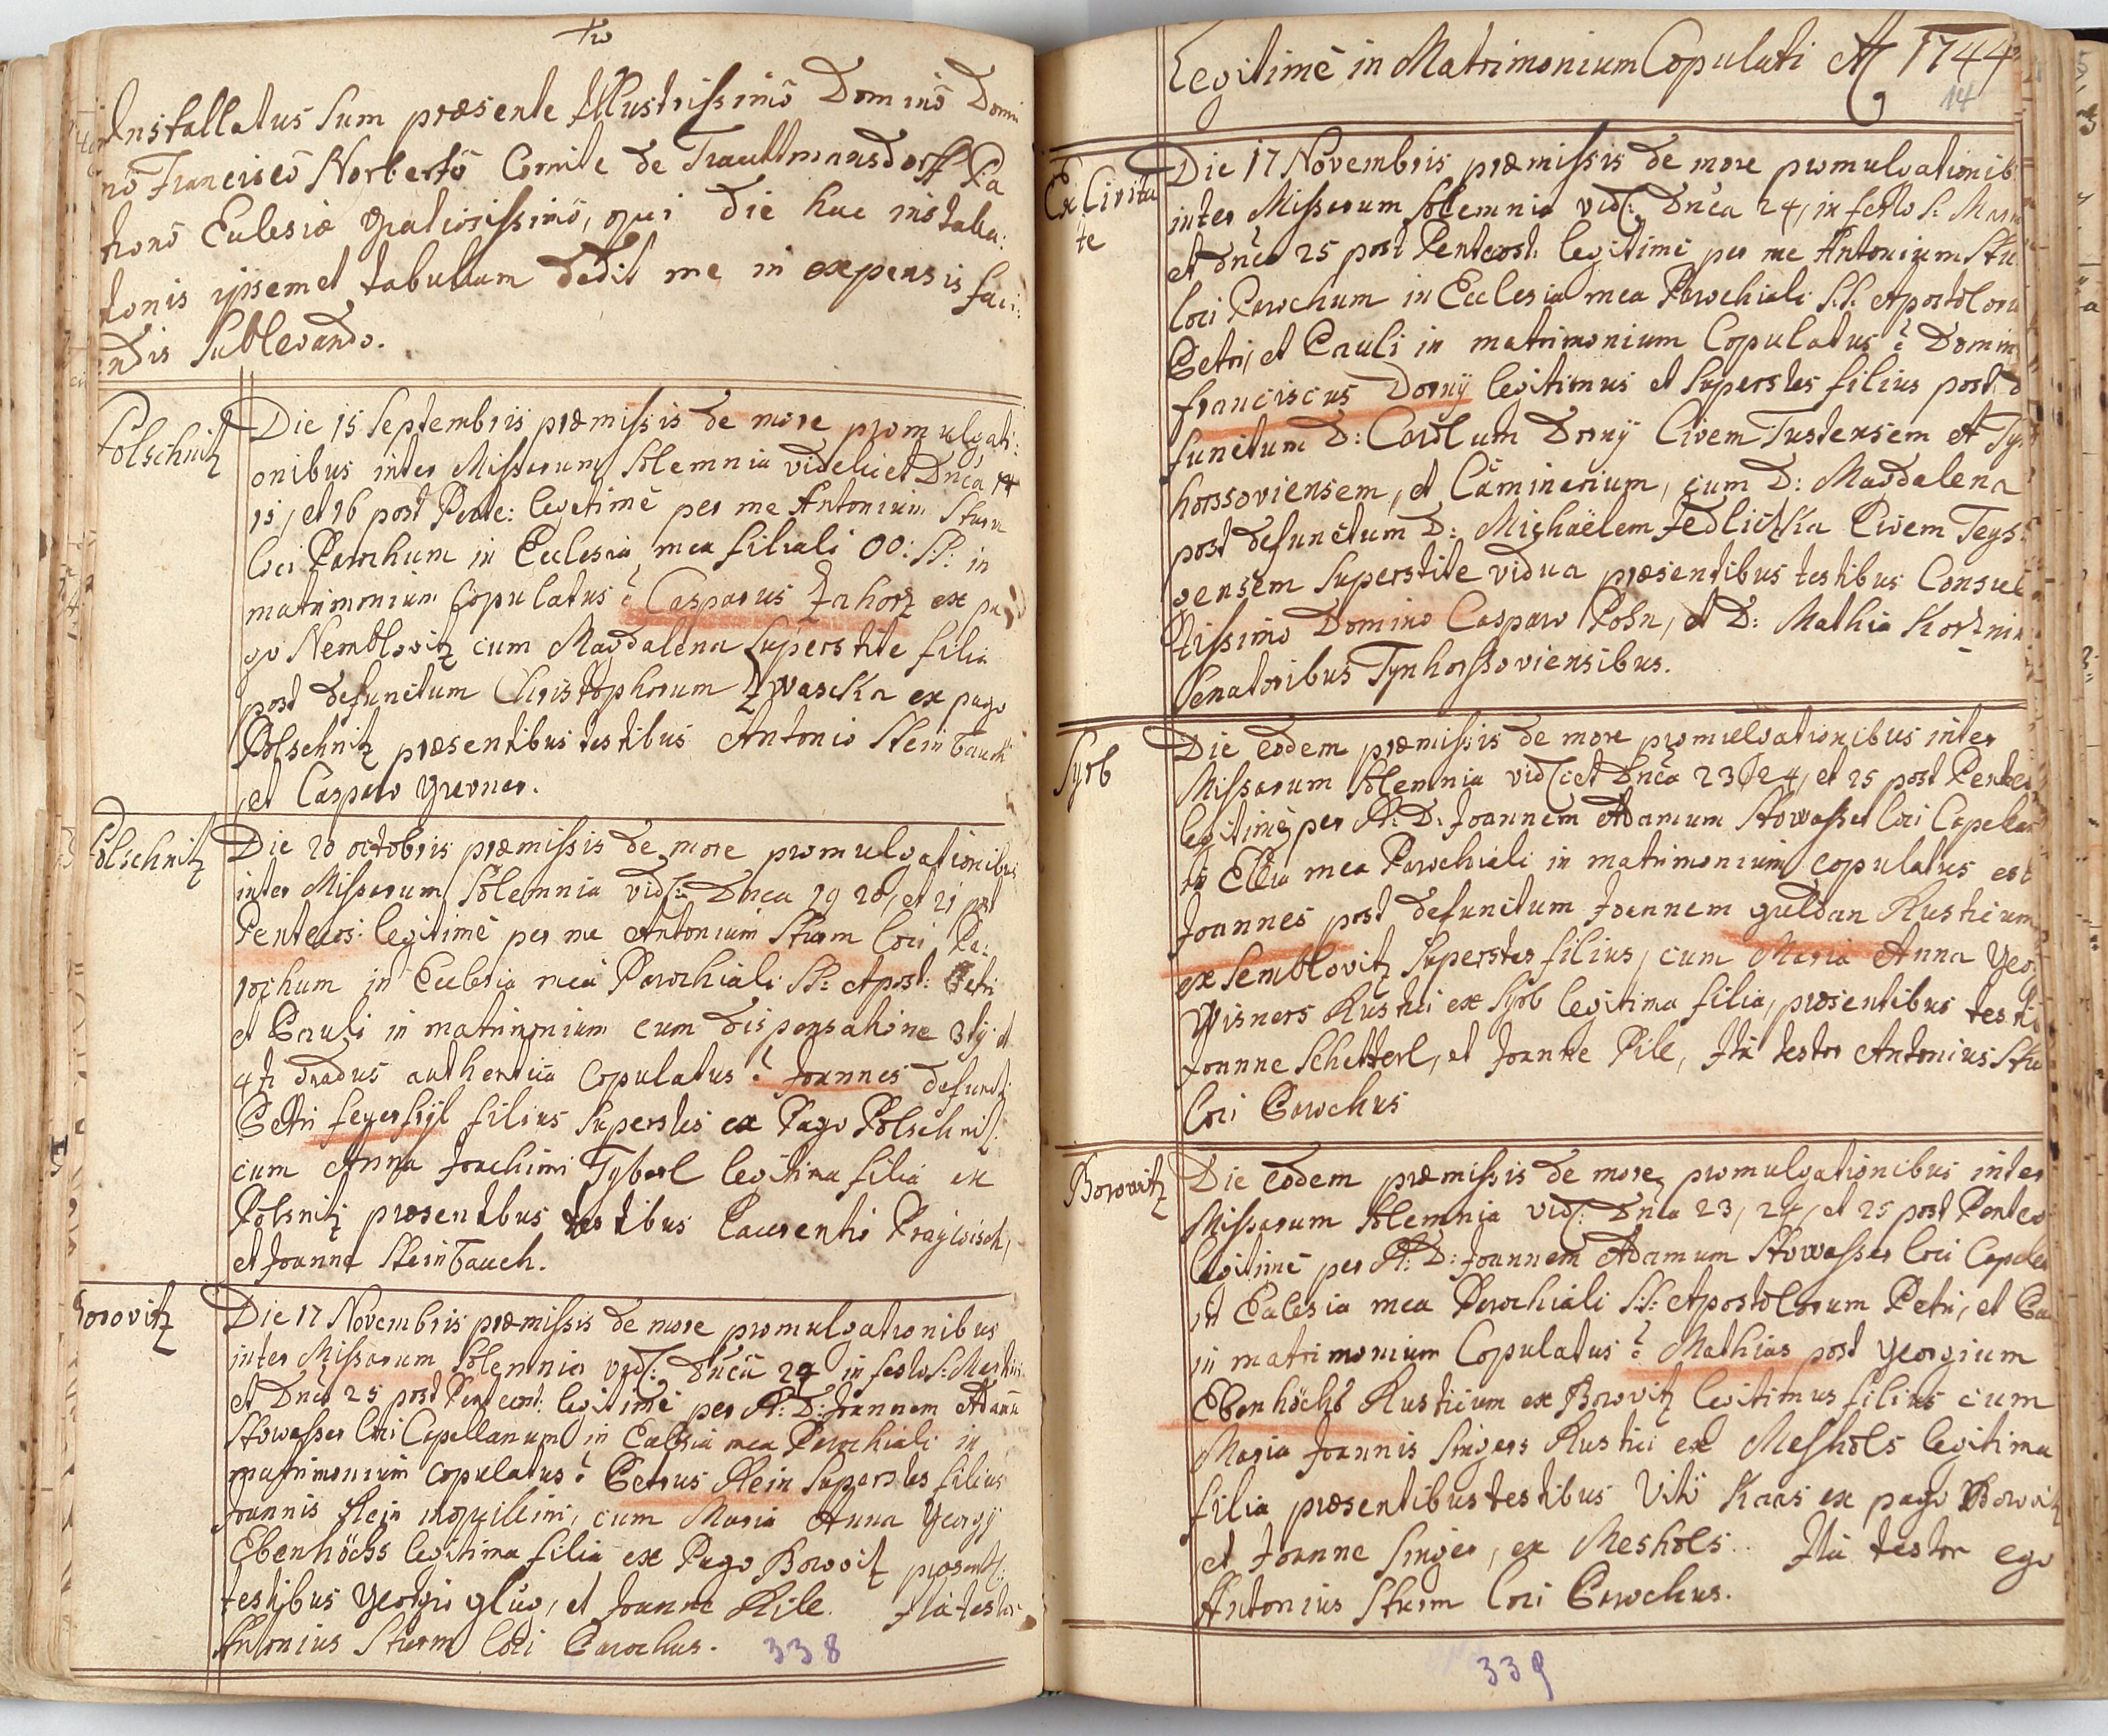 Installatus Sum præsente Illustrissimô Dominô Domi
nô Franciscô Norbertô Comite de Trauttmansdorff Pa
tronô Eclesiæ gratiosissimô, qui die hac instala:
tionis ipsemet tabulam dedit me in expensis faci:
endis Sublevando.
Polschitz
Die 15 Septembris præmissis de more promulgati:
onibus inter Missarum Solemnia videlicet Dnca 14
15, et 16 post Pente: legitimè per me Antonium Sturm
loci Parochum in Ecclesia mea filiali OO: SS: in
matrimonium Copulatus ê Casparus Zahorz ex pa
go Nemblovitz cum Magdalena Superstite filia
post defunctum Christophorum Zwascka ex pago
Polschnitz præsentibus testibus Antonio Steinbauch
et Casparo Grevner.
Polschnitz
Die 20 octobris præmissis de more promulgationibus
inter Missarum Solemnia vidl: Dnca 19 20, et 21 post
Pentecos: legitimè per me Antonium Sturm loci Pa:
rochum in Ecclesia meâ Parochiali SS: Apost: Petri
et Pauli in matrimonium cum dispensatione 3tij et
4ti gradus authentica Copulatus ê Joannes defuncti
Petri feyerfeyl filius Superstes ex Pago Polschnitz
cum Anna Joachimi Tyberl legitima filia ex
Polsnitz præsentibus testibus Laurentio
et Joanne Steinbauch.
Borovitz
Die 17 Novembris præmissis de more promulgationibus
inter Missarum Solemnia vidl: Dncâ 24 in festo S: Martini
et Dncâ 25 post Pentecost: legitimè per A: D: Joannem Adamu
Stowasser loci Capellanum in Eccl͂sia mea Parochiali in
matrimonium copulatus ê Petrus Klein Superstes filius
Joannis Klein inquilini, cum Maria Anna Georgij
Ebenhöchs legitima filia ex Pago Borovitz præsent:
testibus Georgio glüo, et Joanne Pile. Ita testor
Antonius Sturm loci Parochus.
338
Legitimè in Matrimonium Copulati Ao 1744
14
Ex Civita
te
Die 17 Novembris præmissis de more promulgationib
inter Missarum Solemnia vidl: Dnca 24, in festo S: Mar
et dncâ 25 post Pentecost: legitimè per me Antonium Stu
loci Parochum in Ecclesia mea Parochiali S:S: Apostoloru
Petri, et Pauli in matrimonium Copulatus ê Domin
franciscus Dorny legitimus et Superstes filius post d
functum D: Carolum Dorny Civem Tustensem et Ty
horssoviensem, et Caminarium, cum D: Magdalena
post defunctum D: Michaëlem Jedlitzka Civem Teys:
vensem Superstite vidua præsentibus testibus Consul
tissimo Domino Casparo Posn, et D: Mathia
Senatoribus Tynhorssoviensibus.
Syrb
Die eodem præmissis de more promulgationibus inter
Missarum Solemnia vidlcet Dnca 23, 24, et 25 post Pentec
legitimè per A: D: Joannem Adamum Stowasser loci Capellan
in Ecc͂lia mea Parochiali in matrimonium copulatus est
Joannes post defunctum Joannem guldan Rusticum
ex Semblovitz Superstes filius, cum Maria Anna Geor
Wisners Rustici ex Syrb legitima filia, præsentibus testib
Joanne Schetterl, et Joanne Pile, Ita testor Antonius Stu
loci Parochus
Borovitz
Die eodem præmissis de more promulgationibus inter
Missarum Solemnia vidl: Dnca 23, 24, et 25 post Pentec
legitimè per A: D: Joannem Adamum Stowasser loci Capella
in Ecclesia mea Parochiali S:S: Apostolorum Petri, et Pau
in matrimonium Copulatus ê Mathias post Georgium
Ebenhöchl Rusticum ex Borovitz legitimus filius cum
Maria Joannis Singers Rustici ex Meshols legitima
filia præsentibus testibus Vitô Kaas ex pago Borovitz
et Joanne Singer, ex Meshols. Ita testor ego
Antonius Sturm loci Parochus.
339